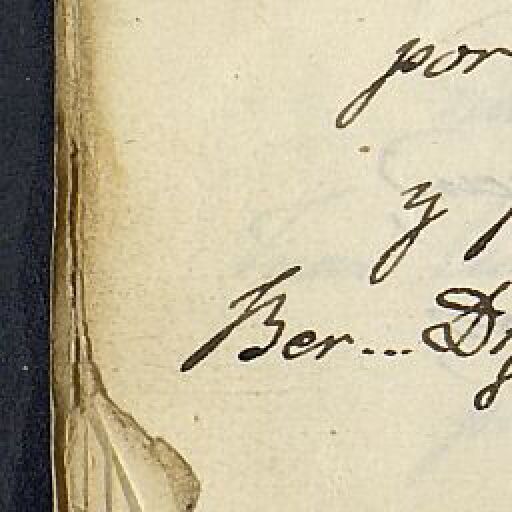 por
y
Ber...